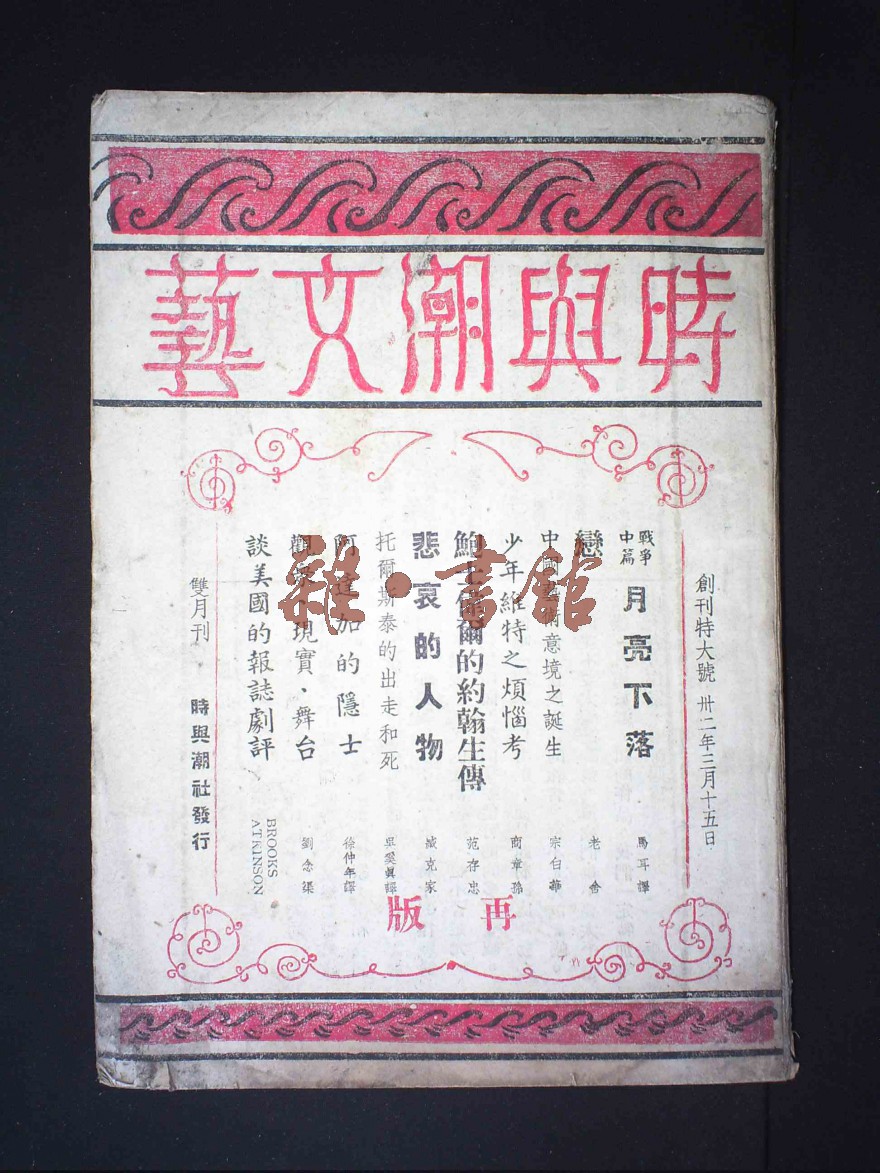 時與潮文藝
創刊特大號 卅二年三月十五日
戰爭中篇 月亮下落 馬耳譯
戀 老舍
中國藝術意境之誕生 宗白華
少年維特之煩惱考 商章孫
鮑士偉爾的約翰生傳 范存忠
悲哀的人物 臧克家
托爾斯泰的出走和死 吳奚真譯
阿達加的隱士 徐仲年譯
觀眾、現實、舞台 劉念渠
談美國的報誌劇評 BROOKS ATKINSON
雙月刊 時與潮社發行
再版
雜·書館